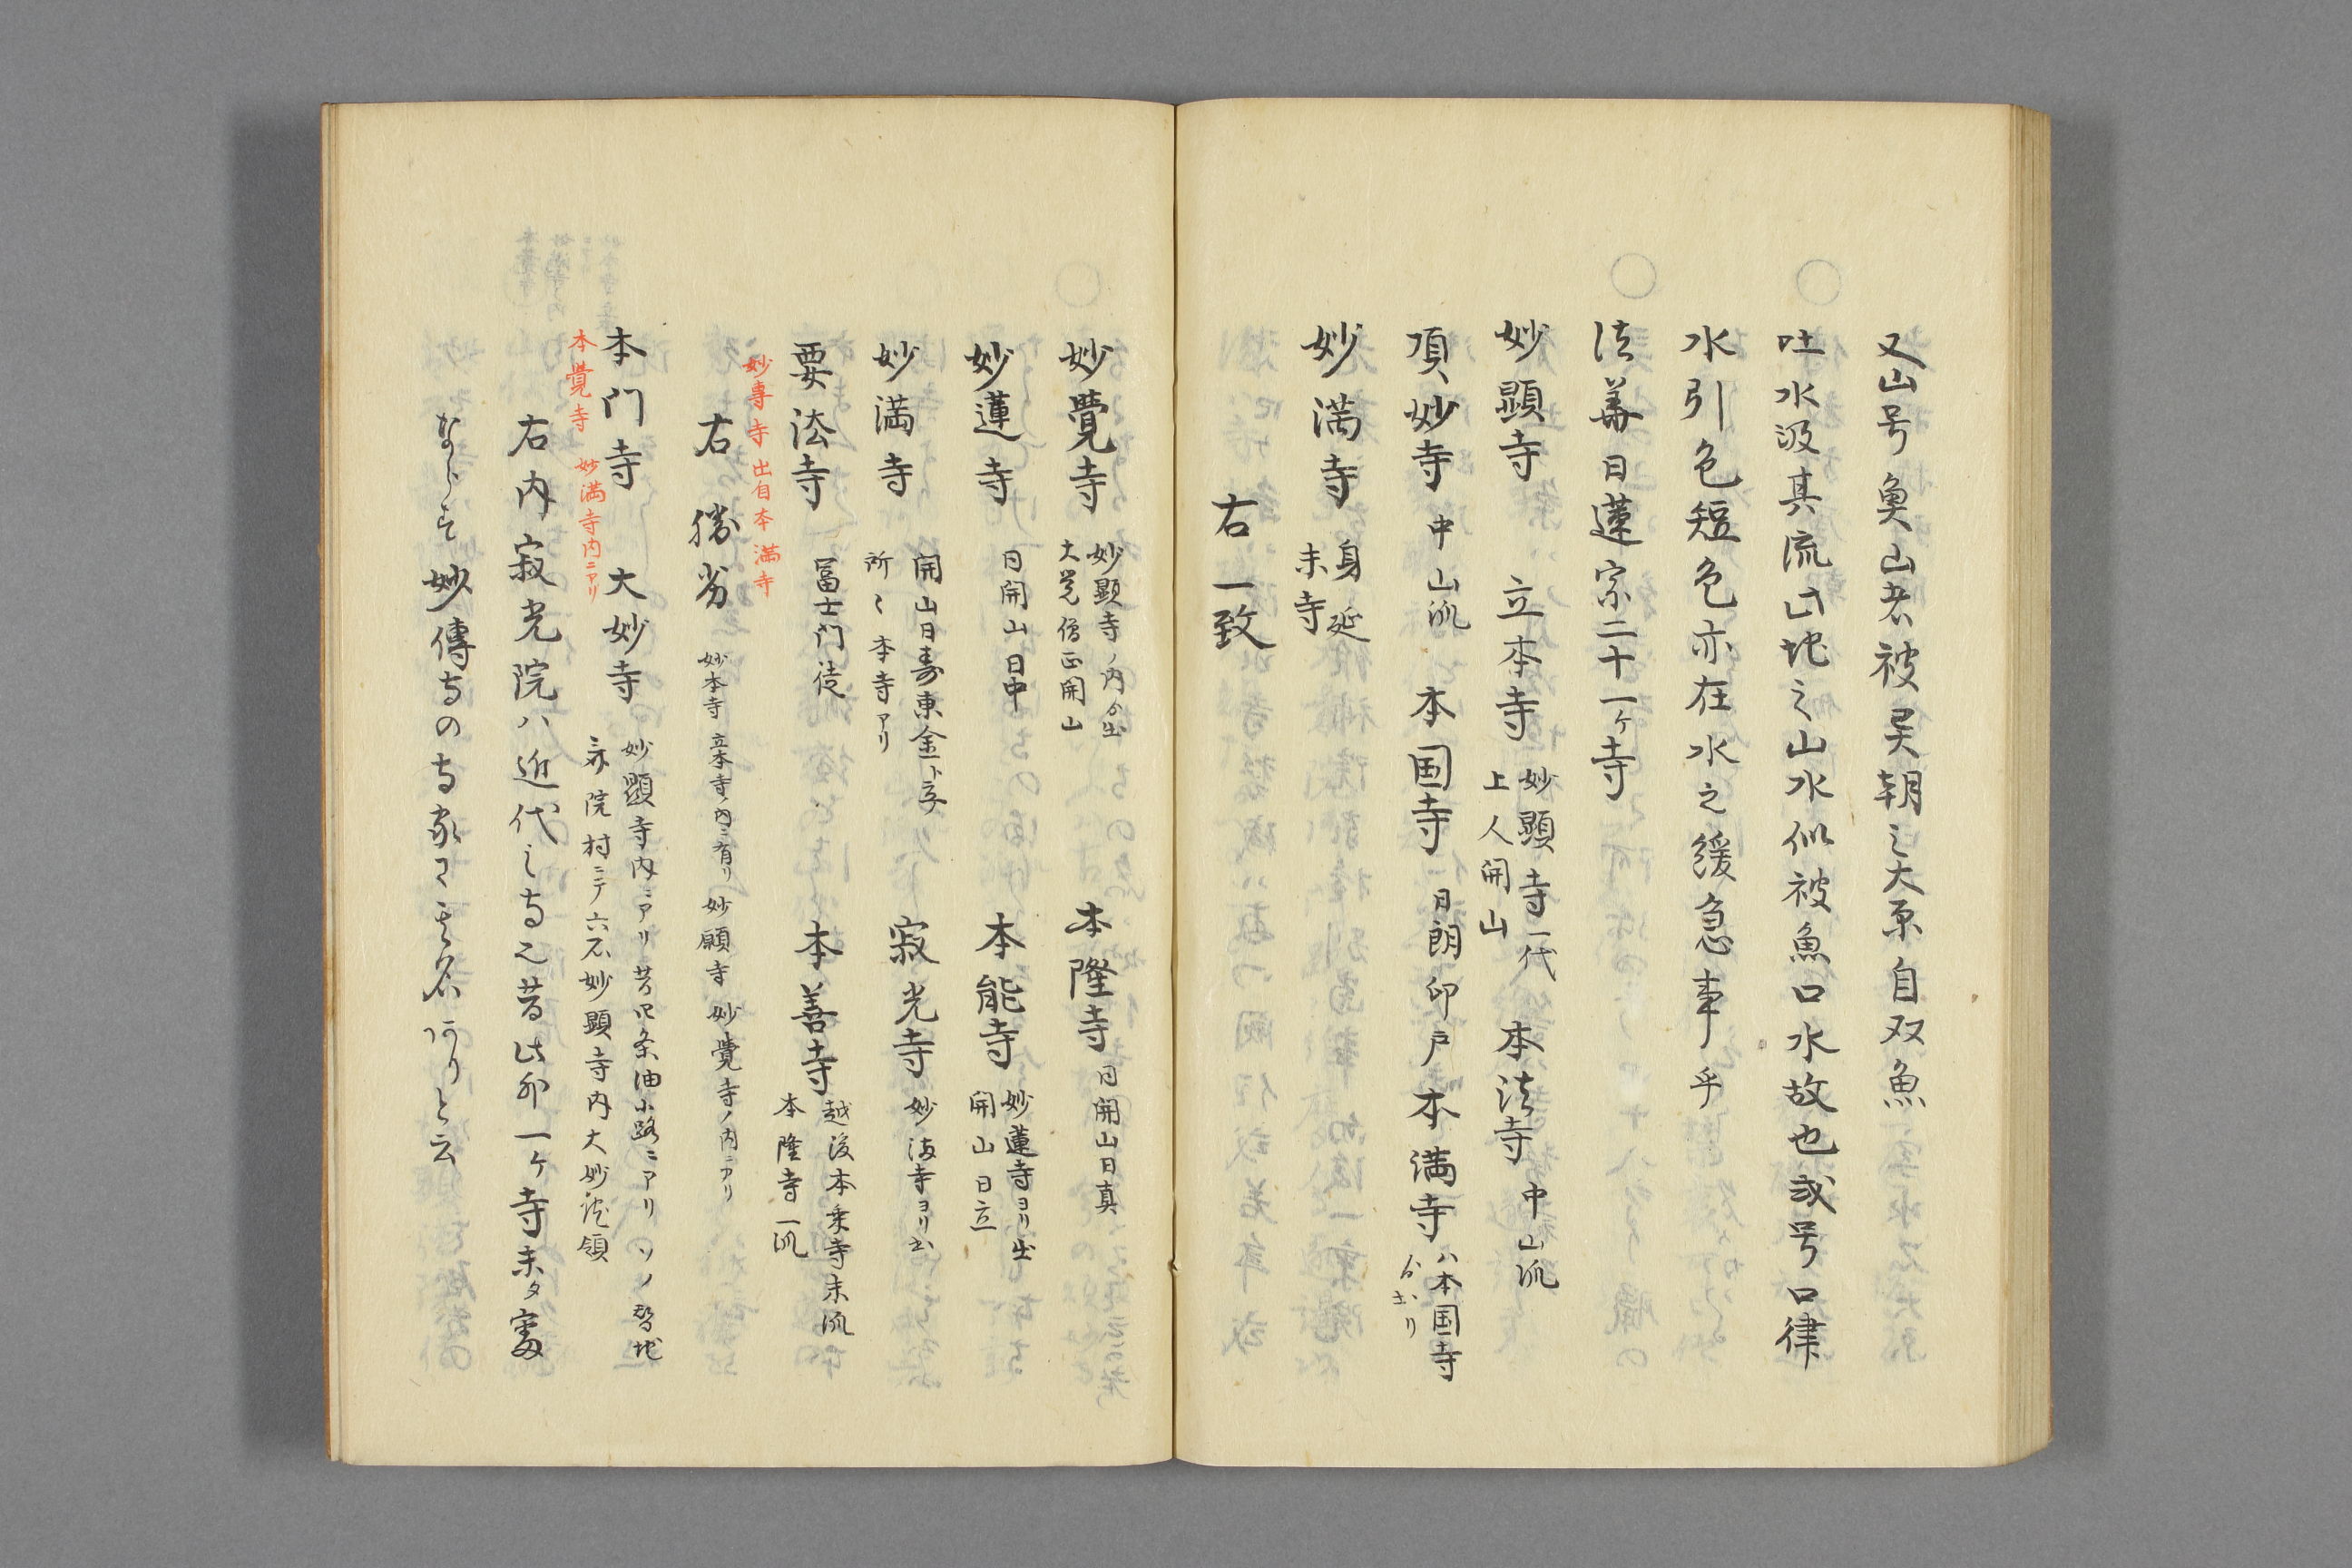 又山号魚山者被異朝之大原自双魚
吐水汲其流此地之山水似被魚口水故也或号口律
水引色短色亦在水之緩急事乎
法華日蓮宗二十一ケ寺
妙顕寺 立本寺 妙顕寺一代
上人開山 本法寺 中山流
頂妙寺 中山流 本国寺 日朗印戸 本満寺 ハ本国寺
ゟ出リ
妙満寺 身延
末寺
右一致
妙覺寺 妙顕寺ノ内ゟ出
大覚僧正開山 本隆寺 日開山日真
妙蓮寺 日開山日中 本能寺 妙蓮寺ヨリ出
開山日立
妙満寺 開山日寿東金ト字
所々本寺アリ 寂光寺 妙満寺ヨリ出
要法寺 冨士門徒 本善寺 越後本乗寺末流
本隆寺一流
妙專寺出自本満寺
右勝劣 妙本寺 立本寺ノ内ニ有リ 妙願寺 妙覺寺ノ内ニアリ
本門寺 大妙寺 妙顕寺内ニアリ昔四条油小路ニアリソノ替地
院村ニテ六石妙顕寺内大妙院領
本覺寺 妙満寺内ニアリ
右内寂光院ハ近代之寺也昔此外一ケ寺末タ審
ならす妙傳寺の寺家に其名ありと云